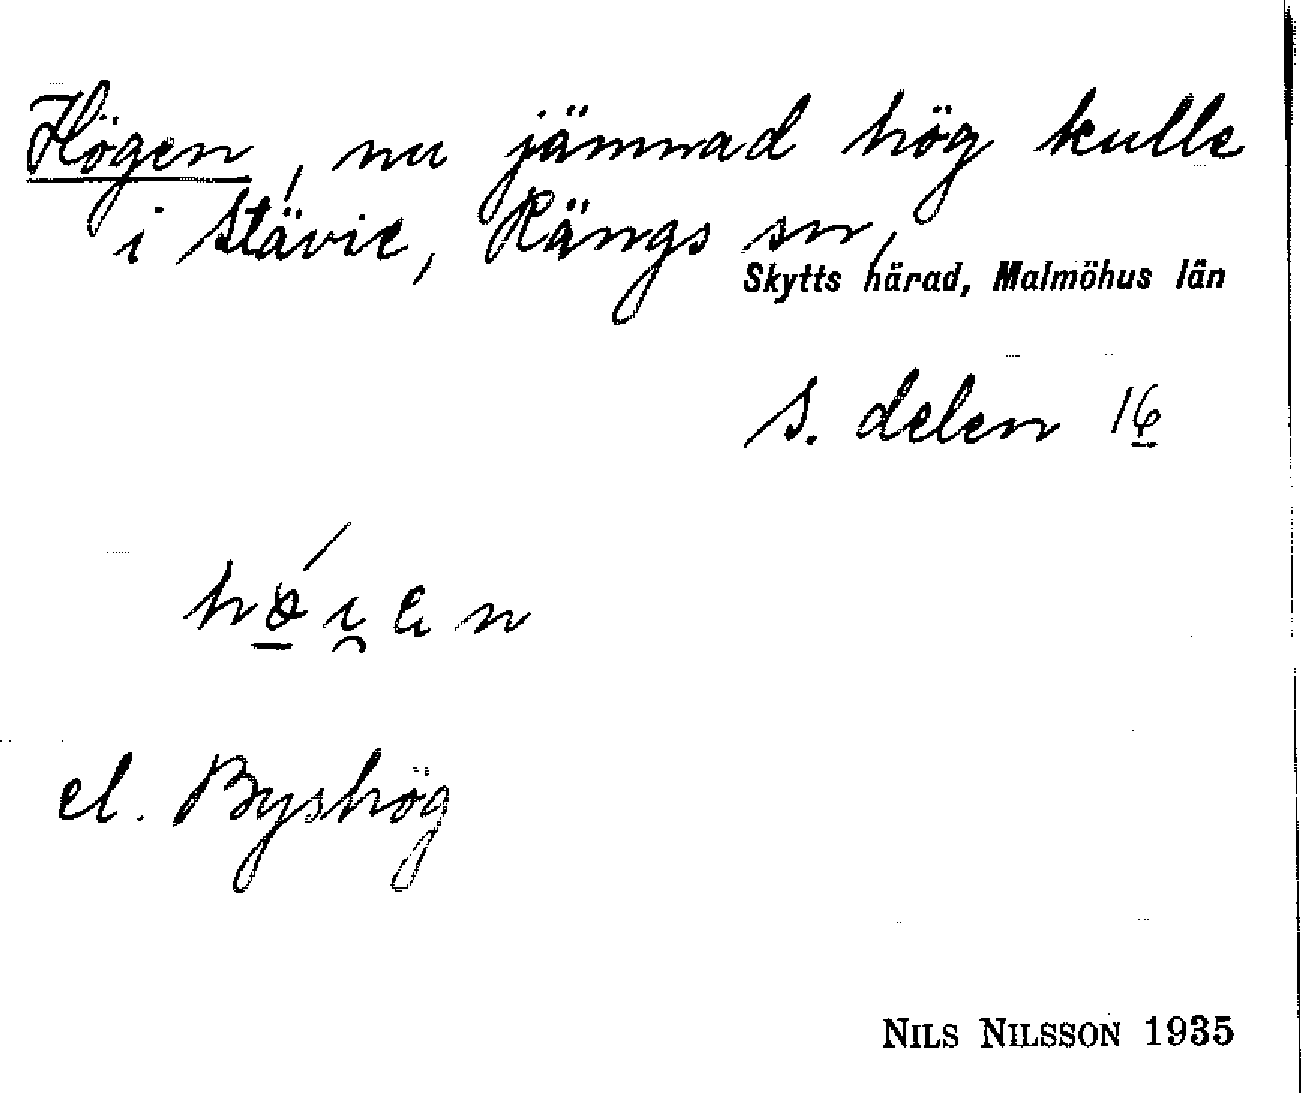 Högen, nu jämnad hög kulle
i Stävie, Rängs sn,
Skytts härad, Malmöhus län
S. delen 16
el. Byshög
NILS NILSSON 1935